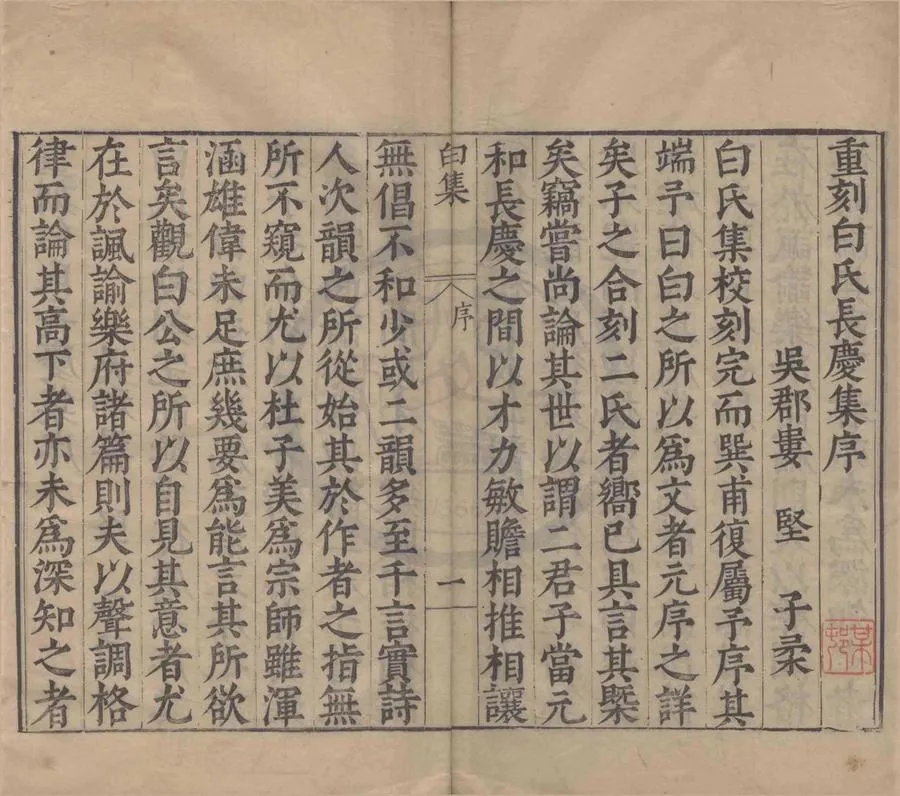 重刻白氏長慶集序
吳郡婁 堅 子柔
白氏集校刻完而巽甫復屬予序其
端予曰白之所以爲文者元序之詳
矣子之合刻二氏者嚮已具言其槩
矣竊嘗尚論其世以謂二君子當元
和長慶之間以才力敏贍相推相讓
白集 序 一
無倡不和少或二韻多至千言實詩
人次韻之所從始其於作者之指無
所不窺而尤以杜子美爲宗師雖渾
涵雄偉未足庶幾要爲能言其所欲
言矣觀白公之所以自見其意者尤
在於諷諭樂府諸篇則夫以聲調格
律而論其高下者亦未爲深知之者